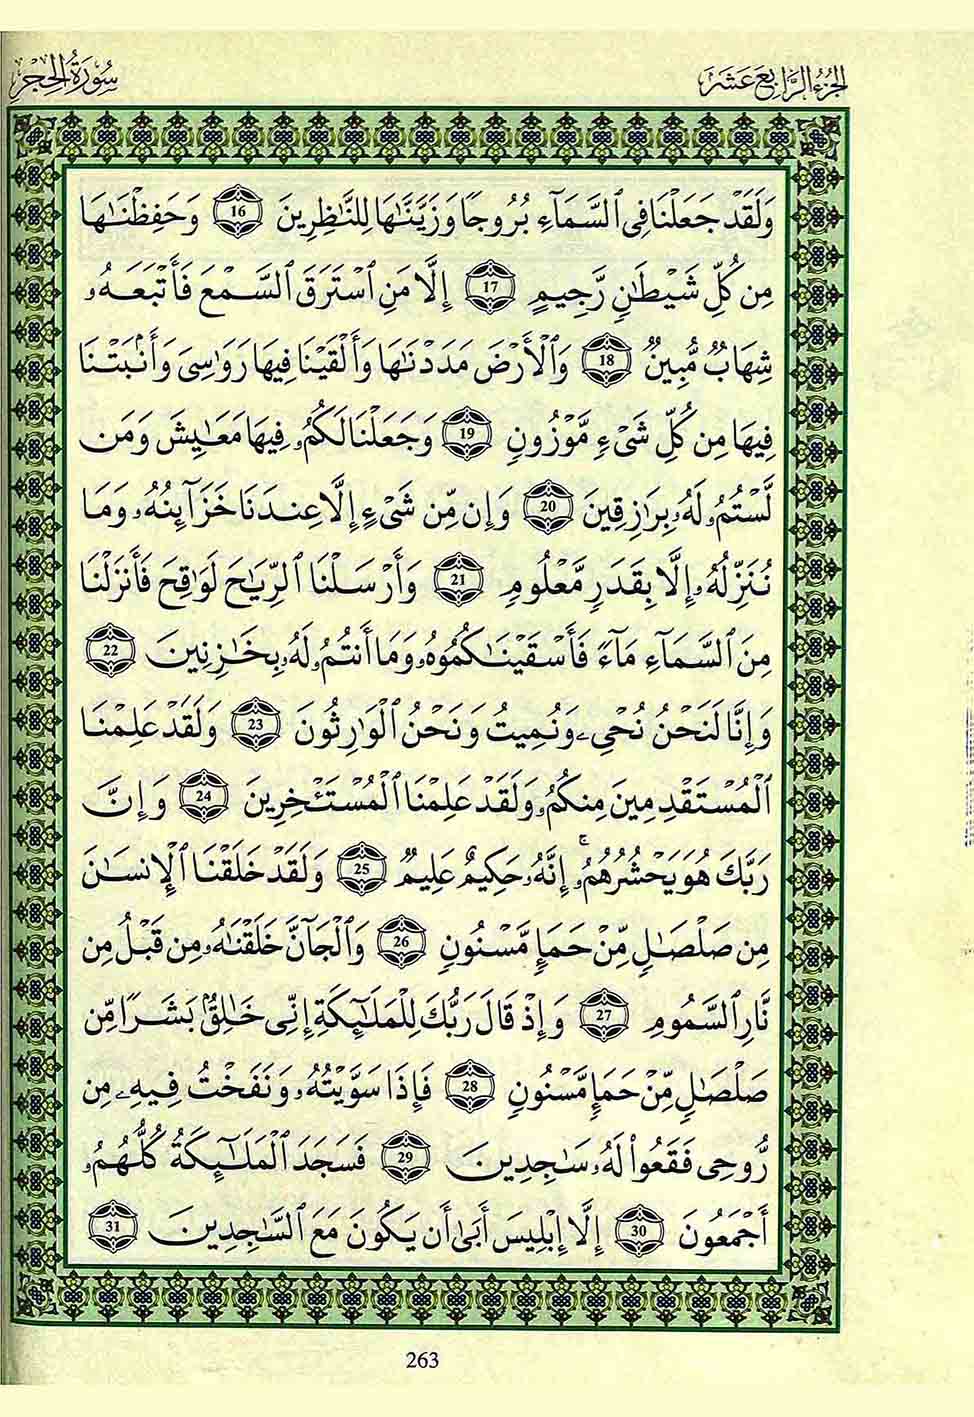 سُورَةُ الحِجْرِ الجُزْءُ الرَّابِعَ عَشَرَ
وَلَقَدْ جَعَلْنَا فِى ٱلسَّمَآءِ بُرُوجًا وَزَيَّنَّٰهَا لِلنَّٰظِرِينَ 16 وَحَفِظْنَٰهَا
مِن كُلِّ شَيْطَٰنٍ رَّجِيمٍ 17 إِلَّا مَنِ ٱسْتَرَقَ ٱلسَّمْعَ فَأَتْبَعَهُۥ
شِهَابٌ مُّبِينٌ 18 وَٱلْأَرْضَ مَدَدْنَٰهَا وَأَلْقَيْنَا فِيهَا رَوَٰسِىَ وَأَنۢبَتْنَا
فِيهَا مِن كُلِّ شَىْءٍ مَّوْزُونٍ 19 وَجَعَلْنَا لَكُمُۥ فِيهَا مَعَٰيِشَ وَمَن
لَّسْتُمُۥ لَهُۥ بِرَٰزِقِينَ 20 وَإِن مِّن شَىْءٍ إِلَّا عِندَنَا خَزَآئِنُهُۥ وَمَا
نُنَزِّلُهُۥ إِلَّا بِقَدَرٍ مَّعْلُومٍ 21 وَأَرْسَلْنَا ٱلرِّيَٰحَ لَوَٰقِحَ فَأَنزَلْنَا
مِنَ ٱلسَّمَآءِ مَآءً فَأَسْقَيْنَٰكُمُوهُۥ وَمَا أَنتُمُۥ لَهُۥ بِخَٰزِنِينَ 22
وَإِنَّا لَنَحْنُ نُحْىِۦ وَنُمِيتُ وَنَحْنُ ٱلْوَٰرِثُونَ 23 وَلَقَدْ عَلِمْنَا
ٱلْمُسْتَقْدِمِينَ مِنكُمُۥ وَلَقَدْ عَلِمْنَا ٱلْمُسْتَـْٔخِرِينَ 24 وَإِنَّ
رَبَّكَ هُوَ يَحْشُرُهُمُۥۚ إِنَّهُۥ حَكِيمٌ عَلِيمٌ 25 وَلَقَدْ خَلَقْنَا ٱلْإِنسَٰنَ
مِن صَلْصَٰلٍ مِّنْ حَمَإٍ مَّسْنُونٍ 26 وَٱلْجَآنَّ خَلَقْنَٰهُۥ مِن قَبْلُ مِن
نَّارِ ٱلسَّمُومِ 27 وَإِذْ قَالَ رَبُّكَ لِلْمَلَٰٓئِكَةِ إِنِّى خَٰلِقٌۢ بَشَرًا مِّن
صَلْصَٰلٍ مِّنْ حَمَإٍ مَّسْنُونٍ 28 فَإِذَا سَوَّيْتُهُۥ وَنَفَخْتُ فِيهِۦ مِن
رُّوحِى فَقَعُوا۟ لَهُۥ سَٰجِدِينَ 29 فَسَجَدَ ٱلْمَلَٰٓئِكَةُ كُلُّهُمُۥ
أَجْمَعُونَ 30 إِلَّا إِبْلِيسَ أَبَىٰ أَن يَكُونَ مَعَ ٱلسَّٰجِدِينَ 31
263